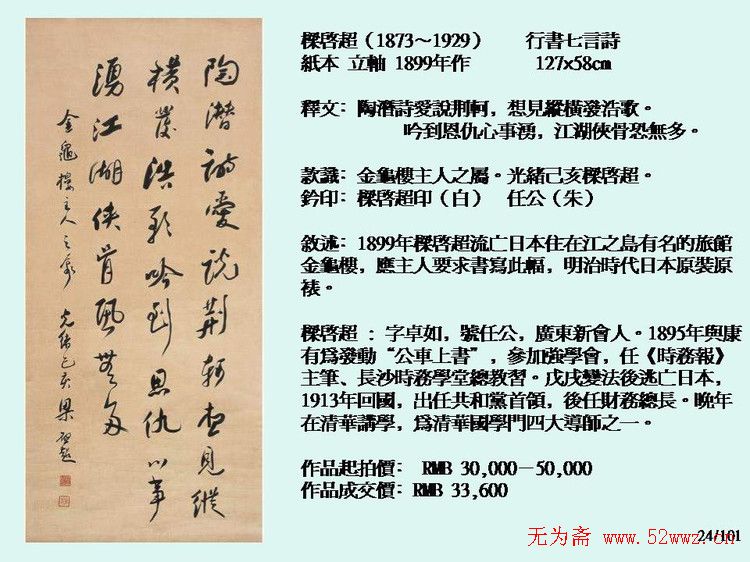 陶潛詩愛說荊軻想見縱
橫發浩歌吟到恩仇心事
湧江湖俠骨恐無多
金龜樓主人之屬 光緒己亥 梁啟超
樑啓超（1873～1929） 行書七言詩
紙本 立軸 1899年作 127x58cm
釋文: 陶潛詩愛說荆軻，想見縱橫發浩歌。
吟到恩仇心事湧，江湖俠骨恐無多。
款識: 金龜樓主人之屬。光緒己亥樑啓超。
鈐印: 樑啓超印（白） 任公（朱）
敘述: 1899年樑啓超流亡日本住在江之島有名的旅館
金龜樓，應主人要求書寫此幅，明治時代日本原裝原
裱。
樑啓超 : 字卓如，號任公，廣東新會人。1895年與康
有爲發動“公車上書”，參加強學會，任《時務報》
主筆、長沙時務學堂總教習。戊戌變法後逃亡日本，
1913年回國，出任共和黨首領，後任財務總長。晚年
在清華講學，爲清華國學門四大導師之一。
作品起拍價: RMB 30,000－50,000
作品成交價: RMB 33,600
24/101
无为斋 www.52wwz.cn